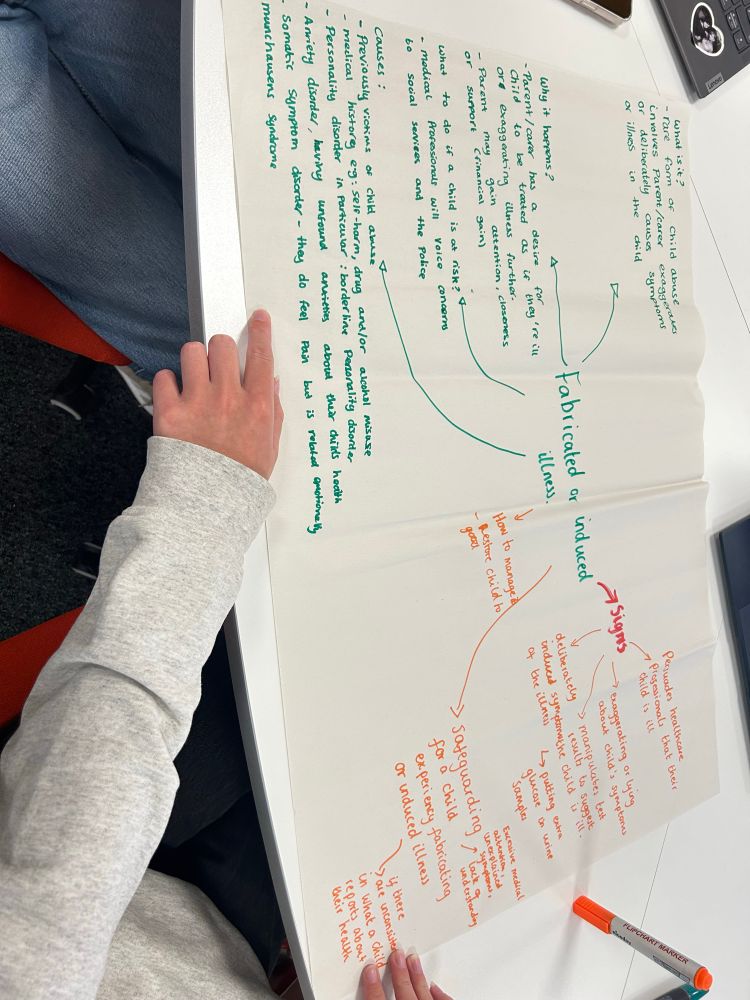 Fabricated or induced
illness.
What is it?
- rare form of child abuse
involves Parent/carer exaggerates
or deliberately causes symptoms
of illness in the child
Why it happens?
- Parent/carer has a desire for
Child to be treated as if they're ill
or exaggerating illness further.
- Parent may gain attention, closeness
or support (financial gain)
what to do if a child is at risk?
- medical Professionals will voice concerns
to social services and the Police
Causes:
- Previously victims of child abuse
- medical history eg: self-harm, drug and/or alcohol misuse
- Personality disorder in Particular: borderline Personality disorder
- Anxiety disorder, having unfound anxieties about their childs health
- Somatic symptom disorder - they do feel pain but is related emotionally
munchausens Syndrome
Signs
Persuades healthcare
professionals that their
child is ill
exaggerating or lying
about child's symptoms
manipulates test
results to suggest
the child is ill.
putting extra
glucose in urine
samples
deliberately
induced symptoms
of the illness
How to managed
- Restore child to
good
Safeguarding
for a child
experiency fabricating
or induced illness
Excessive medical
attention,
unexplained
symptoms,
lack of
understanding
if there
are inconsistent
in what a child
reports about
their health
FLIPCHART MARKER
Lenovo